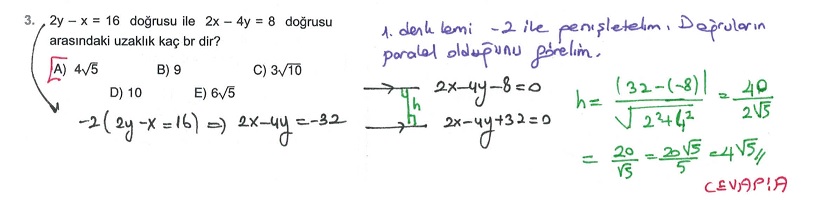 3. 2y – x = 16 doğrusu ile 2x – 4y = 8 doğrusu
arasındaki uzaklık kaç br dir?
A) 4√5 B) 9 C) 3√10
D) 10 E) 6√5
-2(2y-x=16) ⇒ 2x-4y=-32
1. denklemi -2 ile genişletelim. Doğruların
paralel olduğunu görelim.
2x-4y-8=0
h
2x-4y+32=0
h = |32-(-8)| / √(2²+4²) = 40 / 2√5
= 20/√5 = 20√5/5 = 4√5 //
CEVAP:A